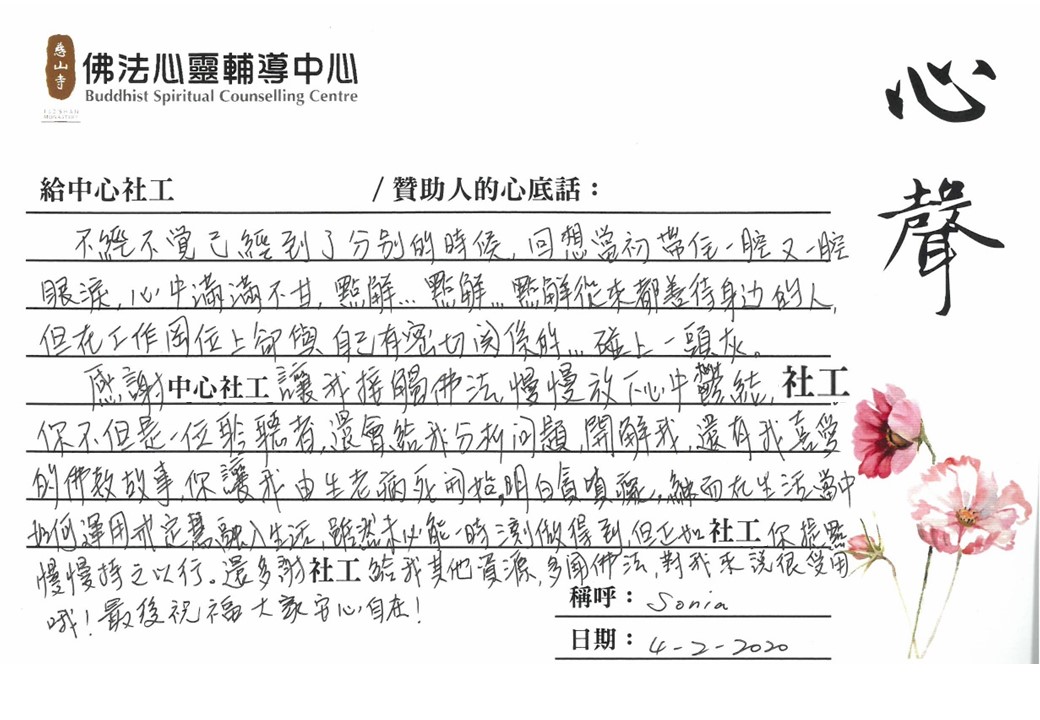 慈山寺
佛法心靈輔導中心
Buddhist Spiritual Counselling Centre
TSZ SHAN
MONASTERY
心聲
給中心社工 / 贊助人的心底話：
不經不覚已經到了分別的時候，回想當初帶住一腔又一腔
眼淚，心中滿滿不甘，點解...點解...點解從來都善待身边的人，
但在工作崗位上卻與自己有密切関係的...碰上一頭灰。
感謝中心社工讓我接觸佛法，慢慢放下心中鬱結，社工
你不但是一位聆聽者，還會給我分析问題，開解我，還有我喜愛
的佛教故事，你讓我由生老病死開始，明白貪嗔癡，繼而在生活當中
如何運用戒定慧融入生活，雖然未必能一時三刻做得到，但正如社工你提點
慢慢持之以行。還多謝社工給我其他資源，多聞佛法，對我來說很受用
哦！最後祝福大家安心自在！
稱呼：Sonia
日期：4-2-2020